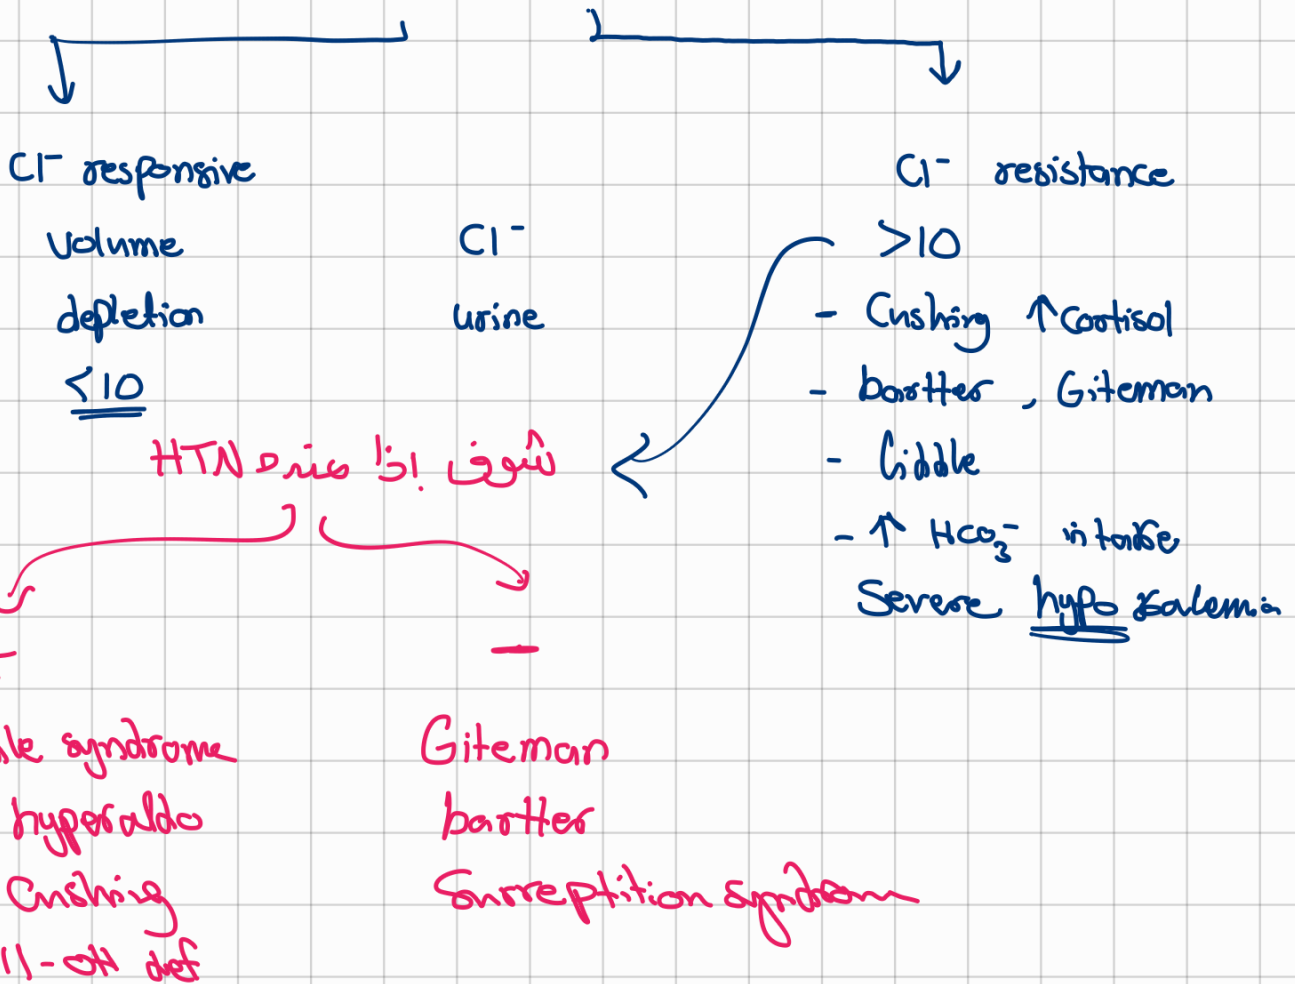 Cl⁻ responsive
volume
depletion
<10
Cl⁻
urine
Cl⁻ resistance
>10
- Cushing ↑ Cortisol
- bartter , Giteman
- liddle
- ↑ HCO₃⁻ intake
Severe hypokalemia
شوف اذا عنده HTN
-
le syndrome
hyperaldo
Cushing
11-OH def
Giteman
bartter
Surreptition syndrom